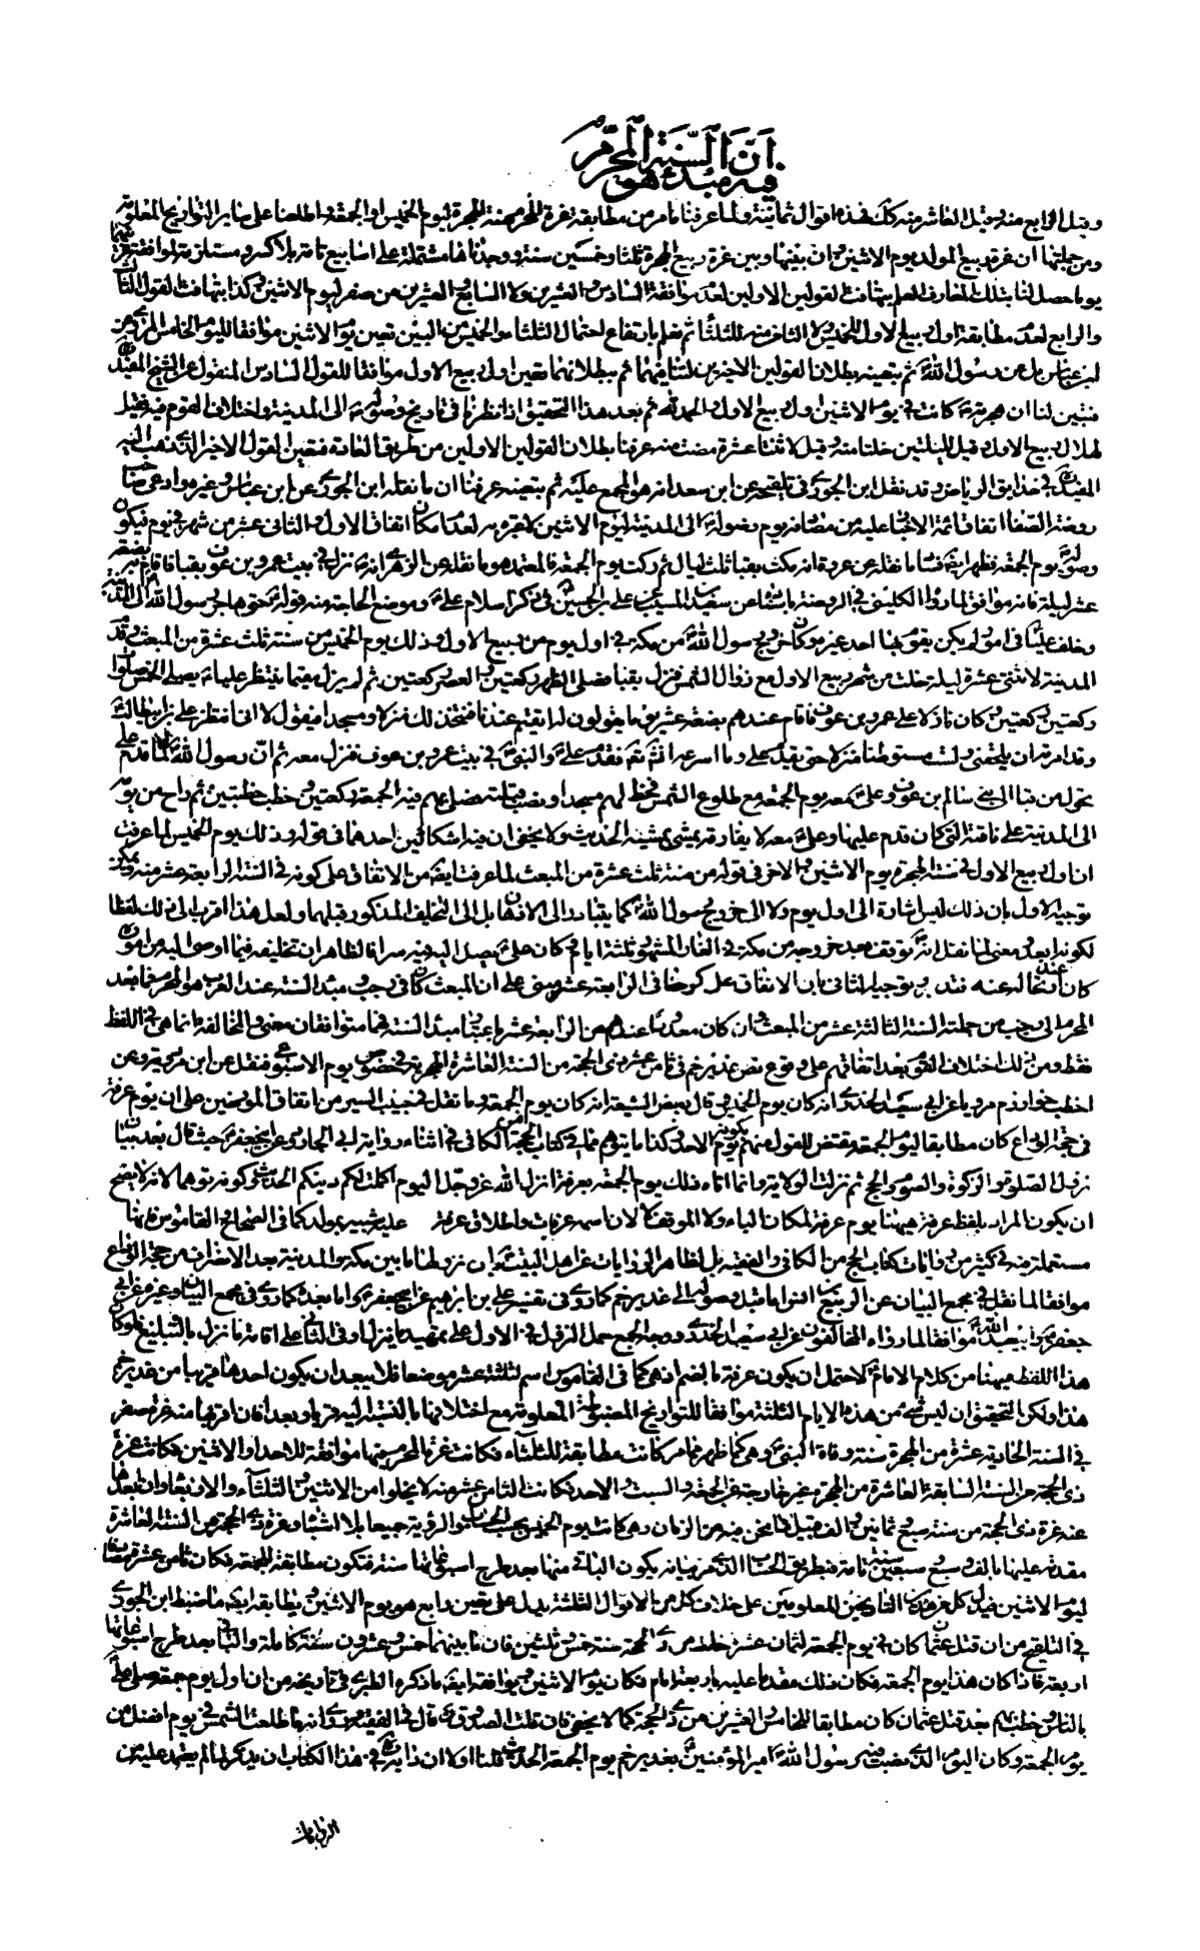 ان السنة المحرم
فيه مبدء هو
وقيل الرابع منه وقيل العاشر منه كل فهذه اقوال ثمانية ولما عرفنا مامر من مطابقة غرة المحرم سنة الهجرة ليوم الخميس او الجمعة واطلعنا على ساير التواريخ المعلومة
ومن جملتها ان غرة ربيع المولد يوم الاثنين وان بينها وبين غرة ربيع الهجرة ثلثا وخمسين سنة ووجدناها مشتملة على اسابيع تامة بلا كسر ومستلزمة لموافقة
يوما حصل لنا بتلك المعارف العلم بتهافت القولين الاولين لعدم موافقة السادس والعشرين ولا السابع والعشرين من صفر ليوم الاثنين وكذا بتهافت القول الثالث
والرابع لعدم مطابقة اول ربيع الاول للخميس ولا الثامن منه للثلثا ثم نعلم بارتفاع احتمال الثلثاء والخميس من البين تعين يوم الاثنين موافقا لليوم الخامس المروى عن
ابن عباس بل عن رسول الله ثم بتعينه بطلان القولين الاخيرين لتنافيهما ثم ببطلانهما تعين اول ربيع الاول موافقا للقول السادس المنقول عن الشيخ المفيد
فتبين لنا ان هجرته كانت في يوم الاثنين اول ربيع الاول والحمد لله ثم بعد هذا التحقيق اذا نظرنا في تاريخ وصوله الى المدينة واختلاف القوم فيه فقيل
لهلال ربيع الاول وقيل لليلتين خلتا منه وقيل لاثنتا عشرة مضت منه عرفنا بطلان القولين الاولين من طريق العادة فتعين القول الاخير الذى ذهب اليه
المفيد في حدايق الرياض وقد نقل ابن الجوزى في تلقيحه عن ابن سعد انه هو المجمع عليه ثم بتعينه عرفنا ان ما نقله ابن الجوزى عن ابن عباس وغيره وادعى صاحب
روضة الصفا اتفاق ائمة الاخبار عليه من مصادفة يوم وصوله الى المدينة ليوم الاثنين لا عبرة به لعدم امكان اتفاق الاول والثانى عشر من شهر في يوم فيكون
وصوله يوم الجمعة فظهر ايضا فساد ما نقله عن عروة انه مكث بقبا ثلث ليال ثم ركب يوم الجمعة فالمعتمد هو ما نقله عن الزهرى انه نزل في بيت عمرو بن عوف بقبا فاقام بضع
عشر ليلة فانه موافق لما رواه الكلينى في الروضة باسناده عن سعيد بن المسيب عن على بن الحسين في ذكر اسلام على وموضع الحاجة منه قوله حتى هاجر رسول الله الى المدينة
وخلف عليا في امور لم يكن يقوم بها احد غيره وكان خروج رسول الله من مكة في اول يوم من ربيع الاول وذلك يوم الخميس من سنة ثلث عشرة من المبعث وقدم
المدينة لاثنتى عشرة ليلة خلت من شهر ربيع الاول مع زوال الشمس فنزل بقبا فصلى الظهر ركعتين والعصر ركعتين ثم لم يزل مقيما ينتظر عليا يصلى الخمس صلوات
ركعتين ركعتين وكان نازلا على عمرو بن عوف فاقام عندهم بضعة عشر يوما يقولون له اتقيم عندنا فنتخذ لك منزلا ومسجدا فيقول لا انى انتظر على بن ابيطالب
وقد امرته ان يلحقنى ولست مستوطنا منزلا حتى يقدم على وما اسرعه انشاء الله تعالى فقدم على والنبى في بيت عمرو بن عوف فنزل معه ثم ان رسول الله لما قدم على
تحول من قبا الى بنى سالم بن عوف وعلى معه يوم الجمعة مع طلوع الشمس فخط لهم مسجدا ونصب قبلته فصلى بهم فيه الجمعة ركعتين وخطب خطبتين ثم راح من يومه
الى المدينة على ناقته التى كان قدم عليها وعلى معه لا يفارقه يمشى بمشيه الحديث ولا يخفى ان فيه اشكالين احدهما في قوله وذلك يوم الخميس لما عرفت
ان اول ربيع الاول في سنة الهجرة يوم الاثنين والاخر في قوله من سنة ثلث عشرة من المبعث لما عرفت ايضا من الاتفاق على كونه في السنة الرابعة عشر منه ويمكن
توجيه الاول بان ذلك ليس اشارة الى اول يوم ولا الى خروج رسول الله كما يتبادر الى الاذهان بل الى التخليف المذكور قبلهما ولعل هذا اقرب الى ذلك لفظا
لكونه ابعد ومعنى لما نقل انه توقف بعد خروجه من مكة في الغار المشهور ثلثة ايام وكان على يصل اليه فيه سرا فالظاهر ان تخليفه فيما اوحى اليه من امور
كان عند ارتحاله عنه فتدبر وتوجيه الثانى بان الاتفاق على كونها في الرابعة عشر مبنى على ان المبعث كان في رجب ومبدأ السنة عند العرب هو المحرم فما بعد
المحرم الى رجب من جملة السنة الثالثة عشر من المبعث وان كان معدودا عندهم من الرابعة عشر باعتبار مبدأ السنة فهما متوافقان معنى والمخالفة انما هى في اللفظ
فقط ومن ذلك اختلاف القوم بعد اتفاقهم على وقوع نص غدير خم في ثامن عشر ذى الحجة من السنة العاشرة الهجرية في خصوص يوم الاسبوع فنقل عن ابن مردويه وعن
اخطب خوارزم مرويا عن ابى سعيد الخدرى انه كان يوم الخميس قال بعض الشيعة انه كان يوم الجمعة وما نقل في حبيب السير من اتفاق المورخين على ان يوم عرفة
في حجة الوداع كان مطابقا ليوم الجمعة مقتض للقول منهم بكونه يوم الاحد وكذا ما يتوهم مما في كتاب الحجة من الكافى في اثناء رواية ابى الجارود عن ابى جعفر حيث قال بعد بيان
نزول الصلوة والزكوة والصوم والحج ثم نزلت الولاية وانما اتاه ذلك يوم الجمعة بعرفة انزل الله عز وجل اليوم اكملت لكم دينكم الحديث وكونه توهما لانه لا يصح
ان يكون المراد بلفظ عرفة هيهنا يوم عرفة لمكان الباء ولا الموقف لان اسمه عرفات واطلاق عرفة عليه شبيه بمولد كما في الصحاح والقاموس فانها
مستعملة فيه في كثير من روايات كتاب الحج من الكافى والفقيه بل لظاهر الروايات عن اهل البيت وان نزولها ما بين مكة والمدينة بعد الانصراف من حجة الوداع
موافقا لما نقل في مجمع البيان عن الربيع بن انس واما قبل وصوله الى غدير خم كما روى في تفسير على بن ابراهيم عن ابى جعفر واما بعده كما روى في مجمع البيان وغيره عن ابى
جعفر وابى عبد الله موافقا لما رواه المخالفون عن ابى سعيد الخدرى ووجه الجمع حمل النزول في الاول على تمهيد ما نزل وفى الثانى على اقامة ما نزل بالتبليغ فلو كان
هذا اللفظ هيهنا من كلام الامام لاحتمل ان يكون عرفة بالضم اذ هى كما في القاموس اسم لثلثة عشر موضعا فلا يبعد ان يكون احدها قريبا من غدير خم
هذا ولكن التحقيق ان ليس شئ من هذه الايام الثلثة موافقا للتواريخ المضبوطة المعلومة مع اختلافها بالنسبة اليه قربا وبعدا فان اقربها منه غرة صفر
في السنة الحادية عشرة من الهجرة سنة وفاة النبى وهى كما ظهر مما مر كانت مطابقة للثلثاء فكانت غرة المحرم فيها موافقة للاحد او الاثنين فكانت غرة
ذى الحجة من السنة السابقة العاشرة من الهجرة غير خارجة عن الجمعة والسبت والاحد فكانت الثامن عشر منه لا يخلو من الاثنين والثلثاء والاربعاء وان ابعدها
عنه غرة ذى الحجة من سنة سبع وثمانين والف قبيل ما نحن فيه من الزمان وهى كانت يوم الخميس بحسب الحساب والرؤية جميعا بلا اشتباه وغرة ذى الحجة من السنة العاشرة
مقدمة عليها بالف وسبع وسبعين سنة تامة فبطريق الحساب الذى مر بيانه يكون الباقى منها بعد طرح اسبوعاتها ستة فتكون مطابقة للجمعة فكان ثامن عشره مطابقا
ليوم الاثنين فيدل كل من هذين التاريخين المعلومين على خلاف كل من الاقوال الثلثة بل يدل على تعين رابع هو يوم الاثنين ويطابقه ايضا ما ضبط ابن الجوزى
في التلقيح من ان قتل عثمان كان في يوم الجمعة لثمان عشر خلت من ذى الحجة سنة خمس وثلثين فان ما بينهما خمس وعشرون سنة كاملة والباقى بعد طرح اسبوعاتها
اربعة فاذا كان هذا يوم الجمعة فكان ذلك مقدما عليه باربعة ايام فكان يوم الاثنين ويوافقه ايضا ما ذكره الطبرى في تاريخه من ان اول يوم جمعة صلى على
بالناس وخطبهم بعد قتل عثمان كان مطابقا للخامس والعشرين من ذى الحجة كما لا يخفى فان قلت الصدوق قال في الفقيه وروى انه ما طلعت الشمس في يوم افضل من
يوم الجمعة وكان اليوم الذى نصب فيه رسول الله امير المؤمنين بغدير خم يوم الجمعة الحديث قلنا اولا ان دابه في هذا الكتاب ان يذكر لما لم يعتمد عليه من
الروايات